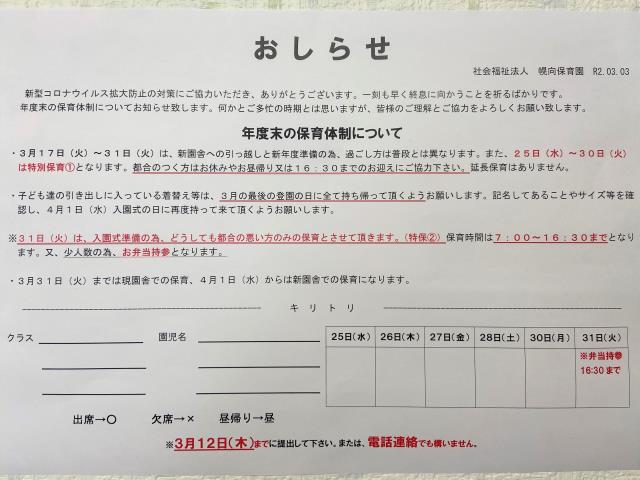 おしらせ
社会福祉法人 幌向保育園 R2.03.03
新型コロナウイルス拡大防止の対策にご協力いただき、ありがとうございます。一刻も早く終息に向かうことを祈るばかりです。
年度末の保育体制についてお知らせ致します。何かとご多忙の時期とは思いますが、皆様のご理解とご協力をよろしくお願い致します。
年度末の保育体制について
・3月17日(火)～31日(火)は、新園舎への引っ越しと新年度準備の為、過ごし方は普段とは異なります。また、25日(水)～30日(火)
は特別保育①となります。都合のつく方はお休みやお昼帰り又は16:30までのお迎えにご協力下さい。延長保育はありません。
・子ども達の引き出しに入っている着替え等は、3月の最後の登園の日に全て持ち帰って頂くようお願いします。記名してあることやサイズ等を確
認し、4月1日(水)入園式の日に再度持って来て頂くようお願いします。
※31日(火)は、入園式準備の為、どうしても都合の悪い方のみの保育とさせて頂きます。(特保②)保育時間は7:00～16:30までとなり
ます。又、少人数の為、お弁当持参となります。
・3月31日(火)までは現園舎での保育、4月1日(水)からは新園舎での保育になります。
キリトリ
クラス 園児名 25日(水) 26日(木) 27日(金) 28日(土) 30日(月) 31日(火)
※弁当持参
16:30まで
出席→○ 欠席→× 昼帰り→昼
※3月12日(木)までに提出して下さい。または、電話連絡でも構いません。